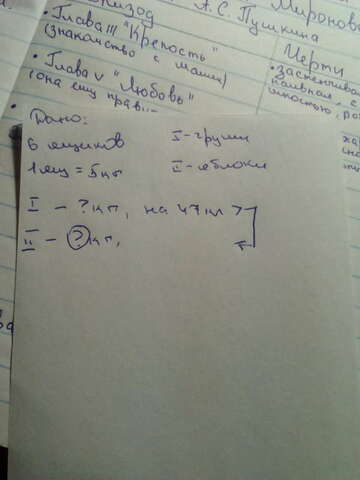 А.С. Пушкина
Миронова
• Глава III "Крепость"
(знакомство с Машей)
• Глава V "Любовь"
(она ему
Черты
Дано:
6 ящиков
I - груши
1 ящ = 5 кг
II - яблоки
I - ? кг, на 47 кг >
II - ? кг,